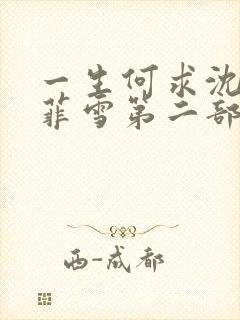 一生何求沈
菲雪第二部
西-成都